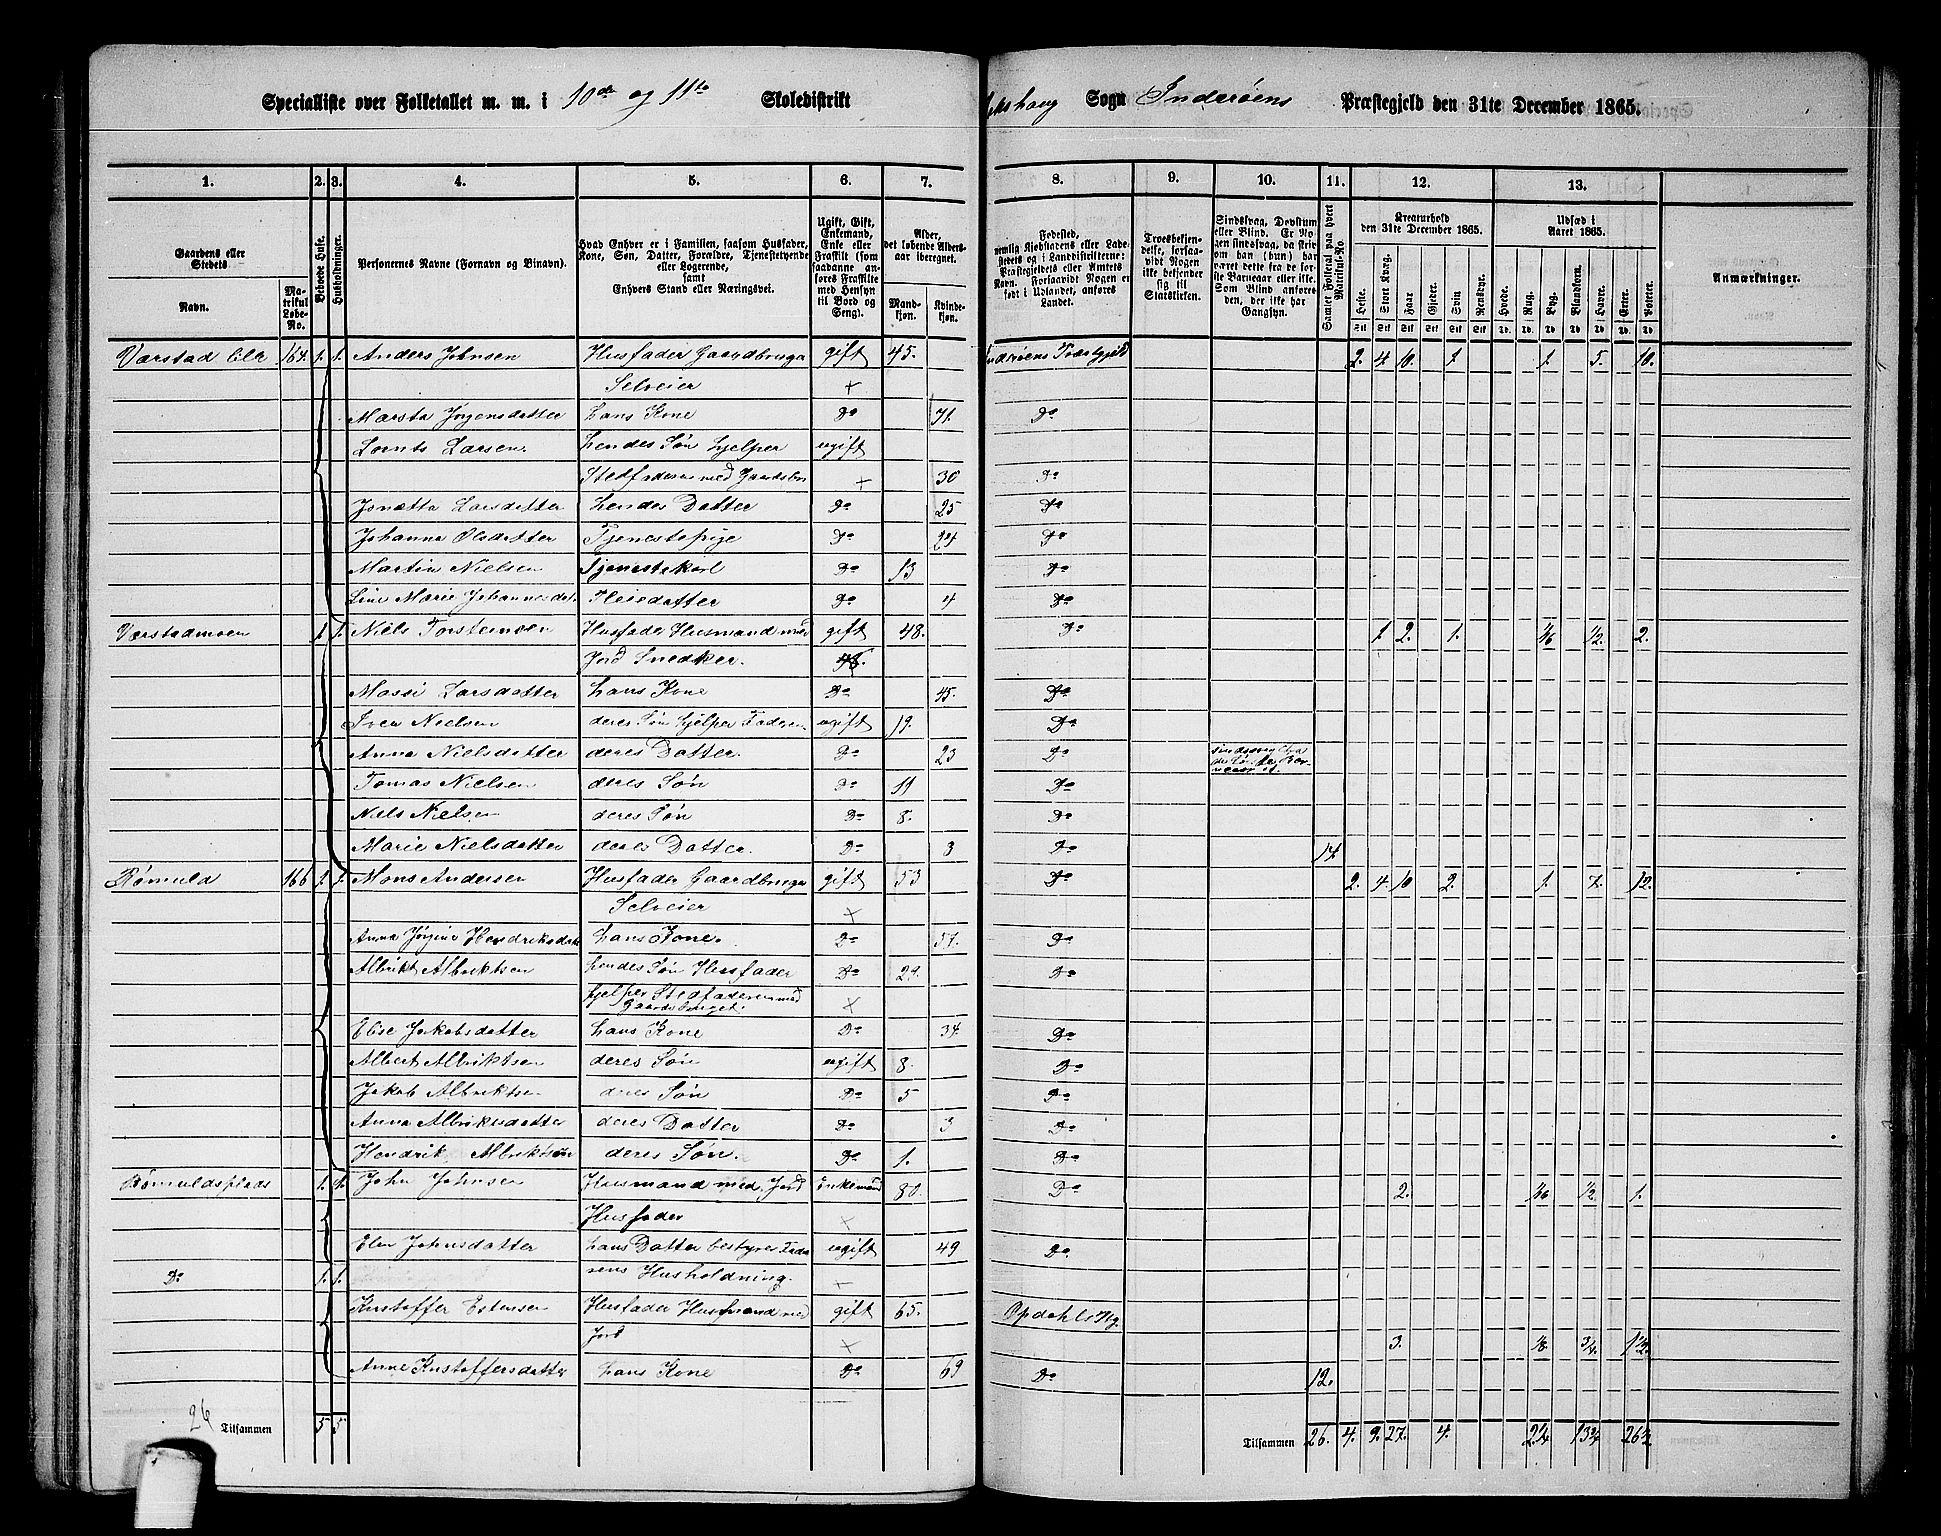 Specialliste over Folketallet m. m. i 10de og 11te Skoledistrikt
Sogn Inderøens Præstegjeld den 31te December 1865.
1. 2. 3. 4. 5. 6. 7. 8. 9. 10. 11. 12. 13.
Gaardens eller Stedets
Navn.
Matrikul Løbe-No.
Beboede Huse.
Husholdninger.
Personernes Navne (Fornavn og Binavn).
Hvad Enhver er i Familien, saasom Husfader, Kone, Søn, Datter, Forældre, Tjenestetyende eller Logerende, samt Enhvers Stand eller Næringsvei.
Ugift, Gift, Enkemand, Enke eller Fraskilt (som saadanne anføres Fraskilte med Hensyn til Bord og Seng).
Alder, det løbende Aldersaar iberegnet.
Mandkjøn. Kvindekjøn.
Fødested,
Troesbekjendelse, forsaavidt Nogen ikke bekjender sig til Statskirken.
Samlet Folketal paa hvert Matrikul-No.
Kreaturhold den 31te December 1865.
Heste. Stort Kvæg. Faar. Gjeder. Svin. Rensdyr.
Udsæd i Aaret 1865.
Hvede. Rug. Byg. Blandkorn. Havre. Erter. Poteter.
Anmærkninger.
Værstad 164. 1. 1. Anders Johnsen Husfader Gaardbruger gift 45. 2. 4. 10. 1. 1. 5. 10.
Selveier +
Marsta Jørgensdatter hans Kone Do 71. Do
Lornts Larsen. hendes Søn hjelper ugift
Stedfaderen med Gaardsbr + 30 Do
Jonetta Larsdatter hendes Datter Do 25 Do
Johanna Olsdatter Tjenestepige Do 24 Do
Martin Nielsen Tjenestekarl Do 13 Do
Line Marie Johannesdat. Pleiedatter Do 4 Do
Værstadmoen 1. 1. Niels Torstensen Husfader Husmand med gift 48. Do 1. 2. 1. 1/6 1/2. 2.
Jord Snedker. 48.
Massi Larsdatter hans Kone Do 45. Do
Iver Nielsen deres Søn hjelper Faderen ugift 19. Do
Anna Nielsdatter deres Datter. Do 23 Do
Tomas Nielsen deres Søn Do 11 Do
Niels Nielsen deres Søn Do 8. Do
Marie Nielsdatter deres Datter. Do 3 Do 14
Rømuld 166 1. 1. Mons Andersen Husfader Gaardbruger gift 53 Do 2. 4. 10 2. 1. 7. 12.
Selveier +
Anna Jørgine Hendriksdatt hans Kone. Do 57. Do
Albrikt Albriktsen hendes Søn Husfader Do 29. Do
hjelper Stedfaderen med Gaardsbruget. +
Elise Jakobsdatter hans Kone Do 34. Do
Albert Albriktsen deres Søn ugift 8. Do
Jakob Albriktsen deres Søn Do 5 Do
Anna Albriktsdatter deres Datter Do 3 Do
Hendrik Albriktsen deres Søn. Do 1. Do
Rømuldsplads 1. 1. John Johnsen Husmand med Jord Enkemand 80. Do 2. 1/16 1/2. 1.
Husfader +
Elen Johnsdatter hans Datter bestyrer Fade ugift 49 Do
Do 1. 1. rens Husholdning. +
Kristoffer Estensen Husfader Husmand med gift 65. Opdahls Pg.
Jord + 3. 1/8. 3/4. 1 1/2.
Anne Kristoffersdatter hans Kone Do 69 Do 12.
26 Tilsammen 5 5 Tilsammen 26. 4. 9. 27. 4. 2 1/4 13 3/4 26 1/2